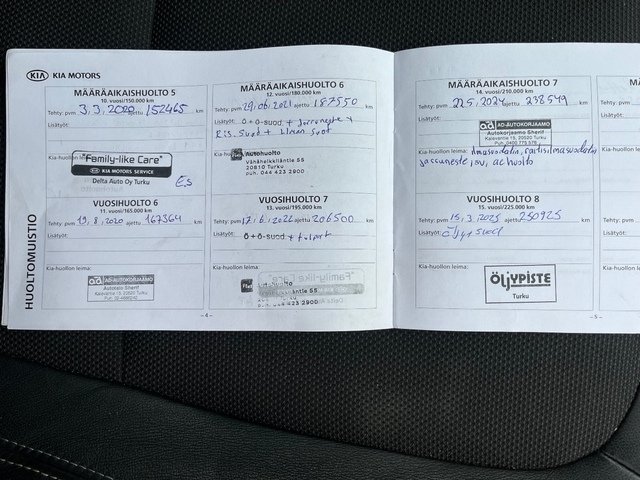 KIA KIA MOTORS
HUOLTOMUISTIO
MÄÄRÄAIKAISHUOLTO 5
10. vuosi/150.000 km
Tehty: pvm 3.3.2020 ajettu 152465 km
Lisätyöt:
Kia-huollon leima:
"Family-like Care"
KIA MOTORS SERVICE
Delta Auto Oy Turku
VUOSIHUOLTO 6
11. vuosi/165.000 km
Tehty: pvm 13.8.2020 ajettu 167364 km
Lisätyöt:
Kia-huollon leima:
ad AD-AUTOKORJAAMO
Autotalo Sherif
MÄÄRÄAIKAISHUOLTO 6
12. vuosi/180.000 km
Tehty: pvm 29.06.2021 ajettu 187550 km
Lisätyöt: Ö+Ö-suod + Jarruneste +
Kia-huollon leima:
Autohuolto
Vänähelkkiläntie 55
20810 Turku
puh. 044 423 2900
VUOSIHUOLTO 7
13. vuosi/195.000 km
Tehty: pvm 17.6.2022 ajettu 206500 km
Lisätyöt: Ö+Ö-suod +
Kia-huollon leima:
Autohuolto
044 423 2900
- 4 -
MÄÄRÄAIKAISHUOLTO 7
14. vuosi/210.000 km
Tehty: pvm 22.5.2024 ajettu 238549 km
Lisätyöt:
ad AD-AUTOKORJAAMO
Autokorjaamo Sherif
Kalavantie 15, 20520 Turku
Puh. 0400 775 576
Kia-huollon leima: ilmasuodatin, raitisilmasuodatin
jarruneste, achuolto
VUOSIHUOLTO 8
15. vuosi/225.000 km
Tehty: pvm 15.3.2025 ajettu 250925 km
Lisätyöt: Öljy+suod
Kia-huollon leima:
ÖLJYPISTE
Turku
- 5 -